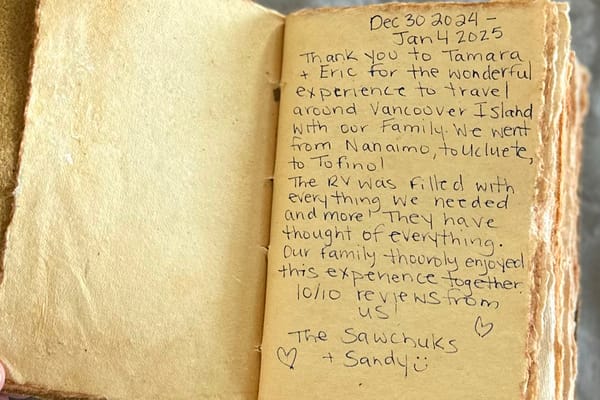 Dec 30 2024 -
Jan 4 2025
Thank you to Tamara
+ Eric for the wonderful
experience to travel
around Vancouver Island
with our Family. We went
from Nanaimo, to Ucluete,
to Tofino!
The RV was filled with
everything we needed
and more! They have
thought of everything.
Our family thouroly enjoyed
this experience together.
10/10 reviews from
us!
The Sawchuks
+ Sandy